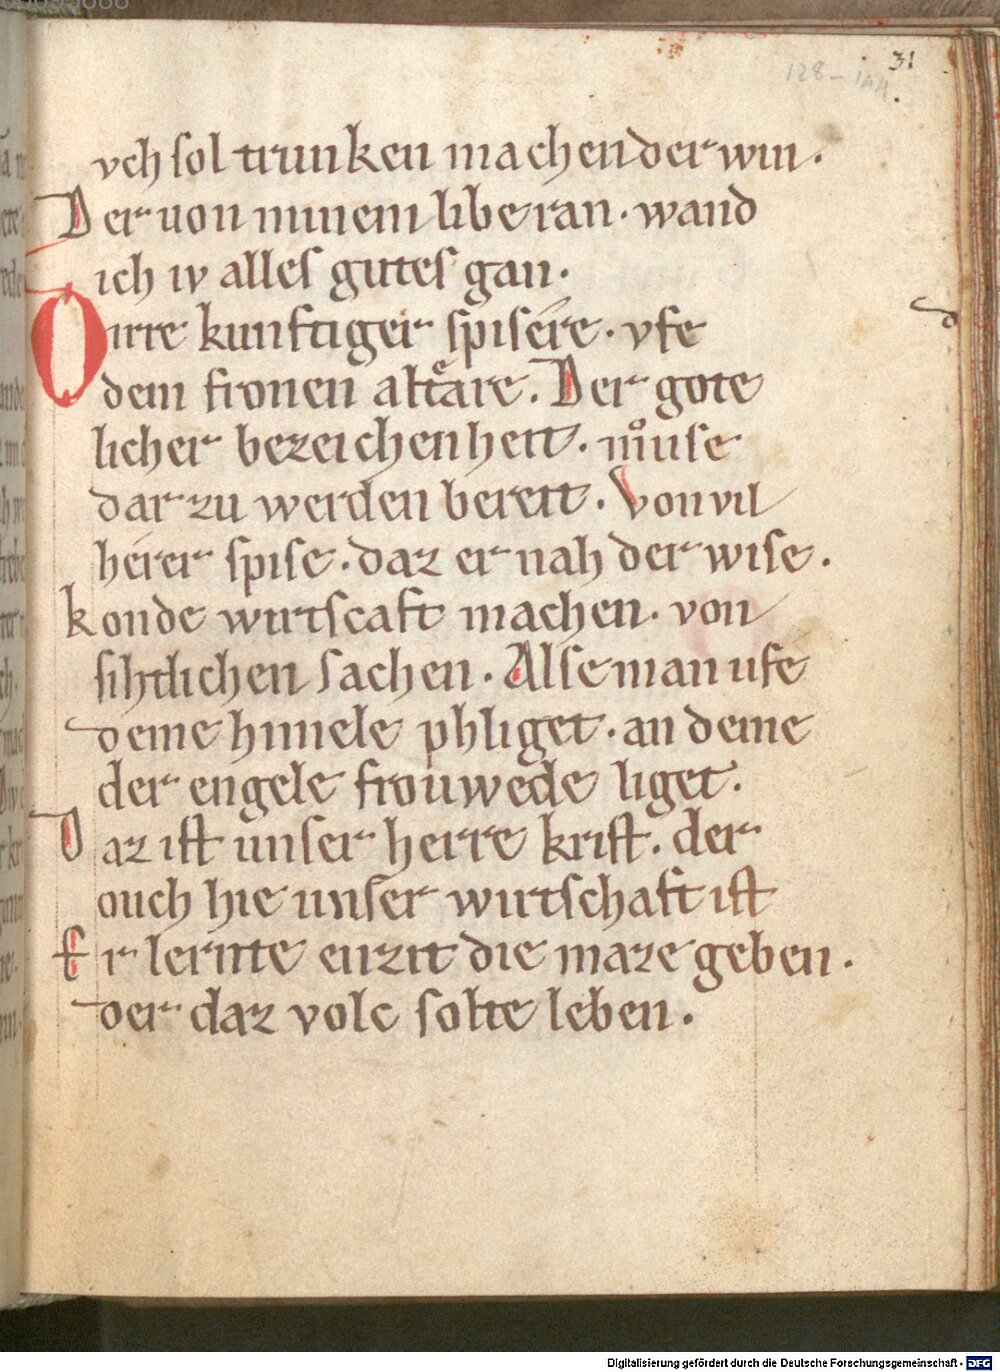 31
128–144.
vch sol trunken machen der win.
Der uon minem libe ran. wand
ich iv alles gutes gan.
Dirre kunftiger spisére. vfe
dem fronen altare. Der gote
licher bezeichenheit. mͦuse
dar zu werden bereit. Von vil
hérer spise. daz er nah der wise.
konde wirtscaft machen. von
sihtlichen sachen. Alse man ufe
deme himele phliget. an deme
der engele frouwede liget.
Daz ist unser herre krist. der
ouch hie unser wirtschaft ist
Er lernte enzit die maze geben.
der daz volc solte leben.
d
Digitalisierung gefördert durch die Deutsche Forschungsgemeinschaft - DFG